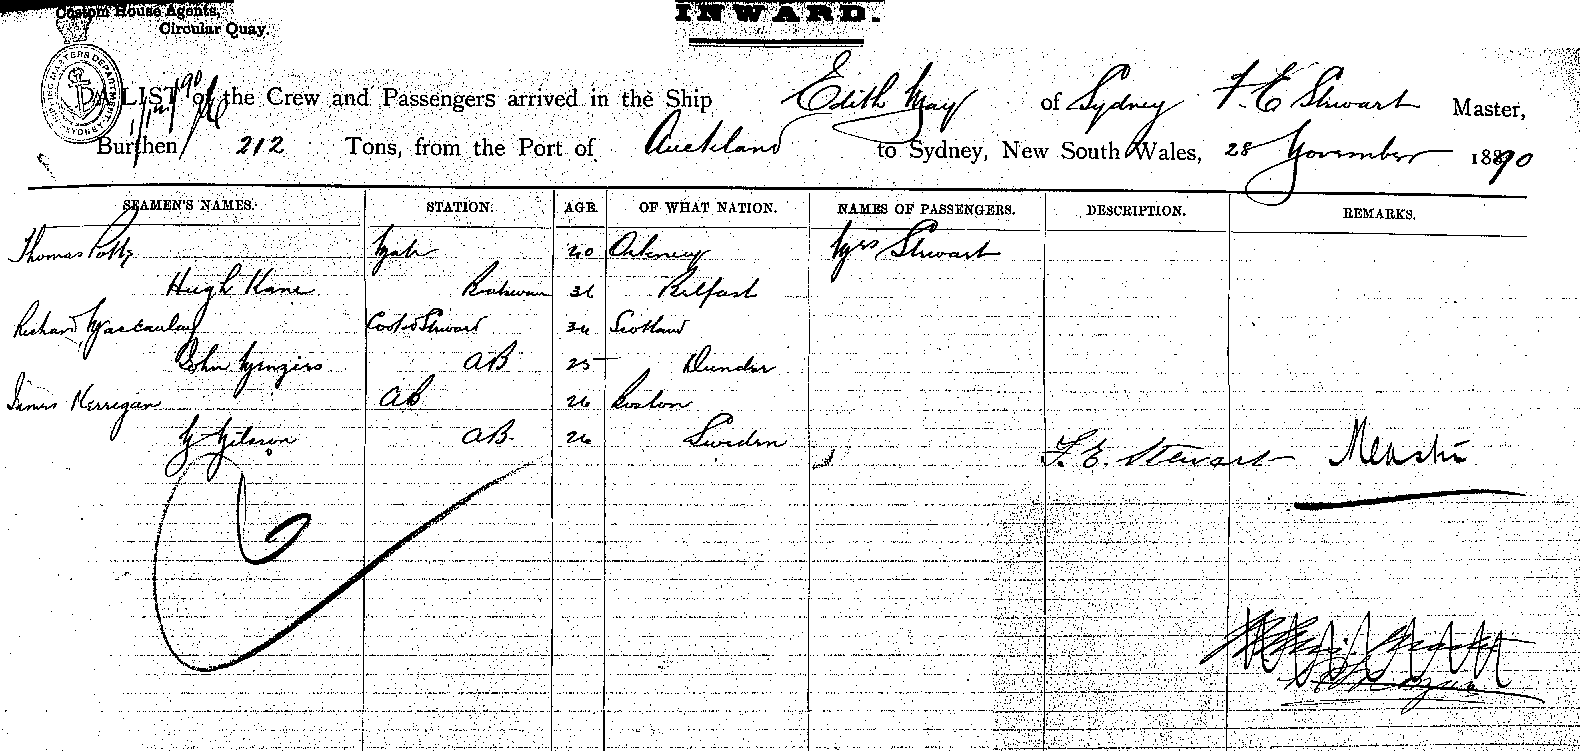 Custom House Agents,
Circular Quay.
INWARD.
A LIST of the Crew and Passengers arrived in the Ship Edith May of Sydney F. E Stewart Master,
Burthen 212 Tons, from the Port of Auckland to Sydney, New South Wales, 28 November 1890
SEAMEN'S NAMES. STATION. AGE. OF WHAT NATION. NAMES OF PASSENGERS. DESCRIPTION. REMARKS.
Thomas Potts Mate 40 Orkney Mrs Stewart
Hugh Kane 36 Belfast
Richard Macaulay Cook & Steward 34 Scotland
John Menzies AB 25 Dundee
James Kerrigan AB 26 Boston
AB 26 Sweden
F. E. Stewart Master